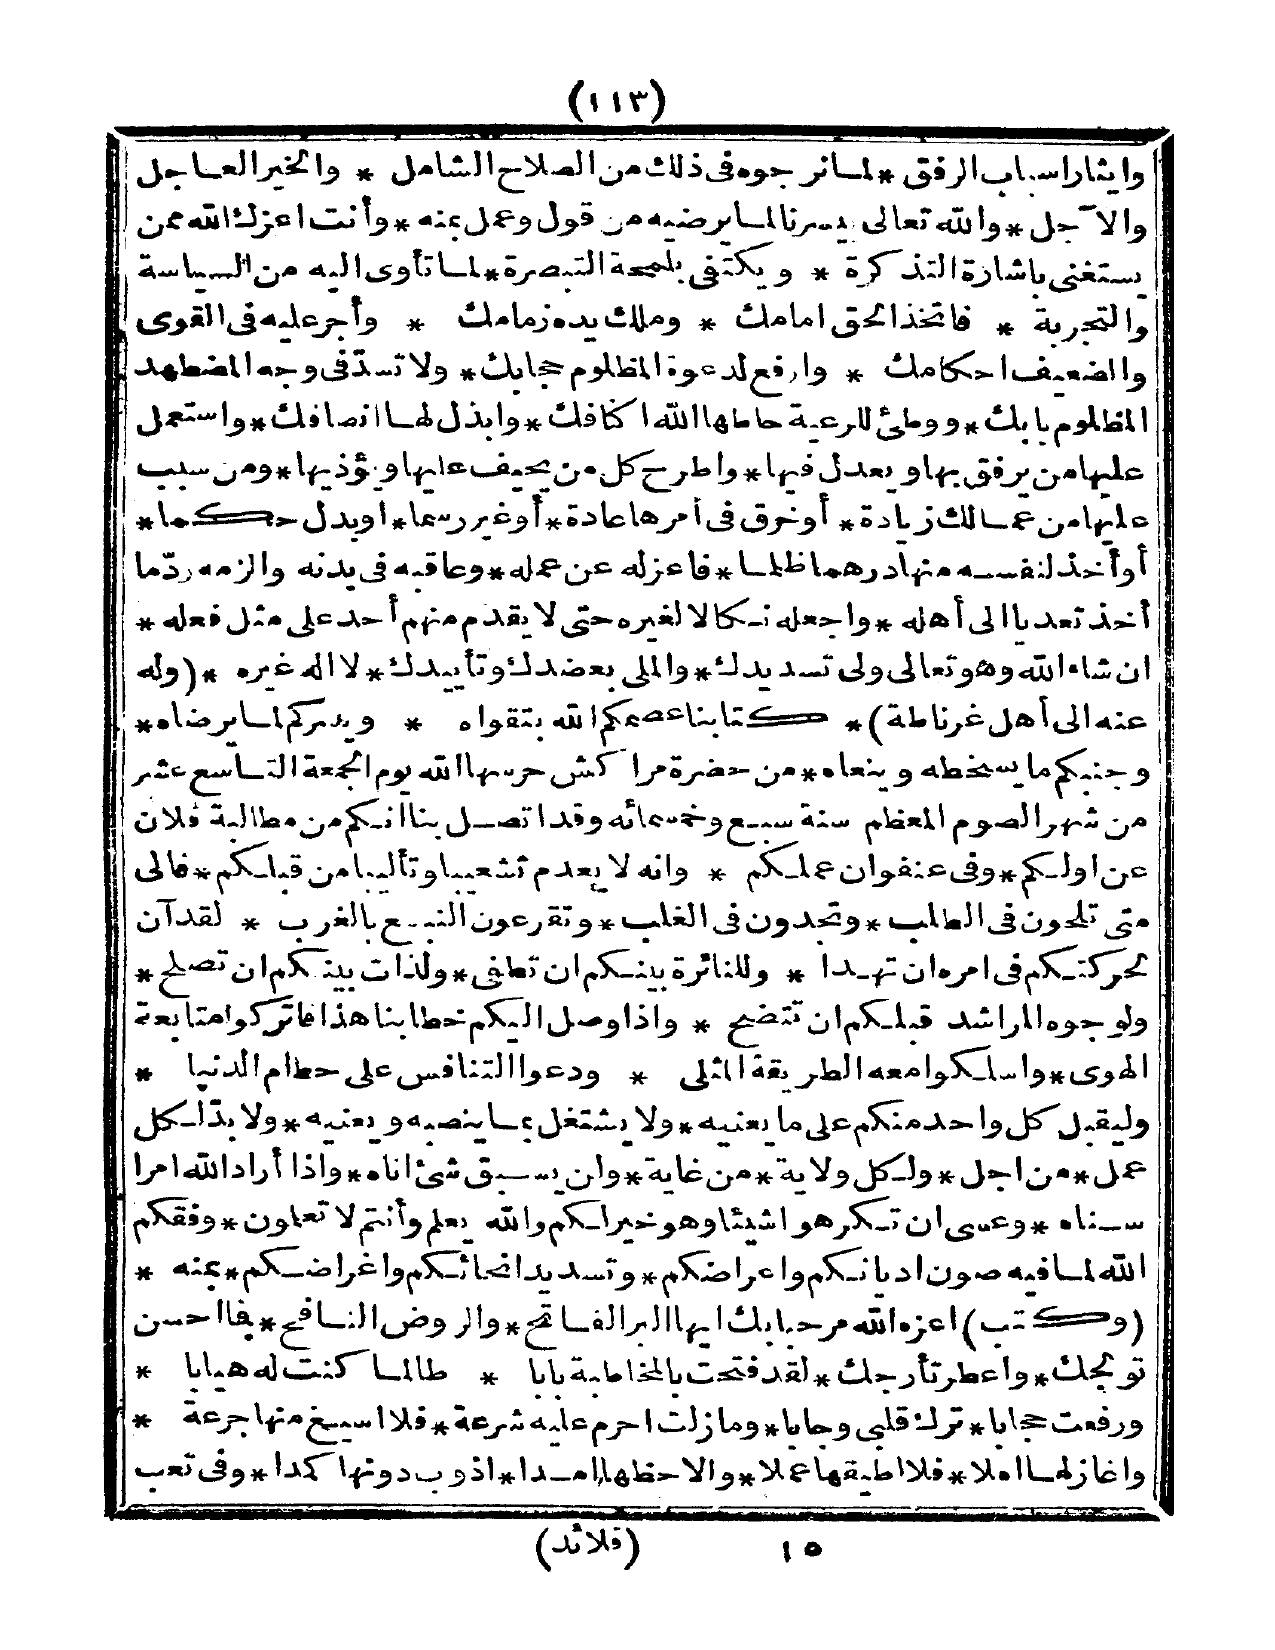 (١١٣)
وايثار اسباب الرفق * لما نرجوه فى ذلك من الصلاح الشامل * والخير العاجل
والآجل * والله تعالى ييسرنا لما يرضيه من قول وعمل بمنه * وأنت اعزك الله ممن
يستغنى باشارة التذكرة * ويكتفى بلمحة التبصرة * لما تأوى اليه من السياسة
والتجربة * فاتخذ الحق امامك * وملك يده زمامك * وأجر عليه فى القوى
والضعيف احكامك * وارفع لدعوة المظلوم حجابك * ولا تسدّ فى وجه المضطهد
المظلوم بابك * ووطئ للرعية حاطها الله اكنافك * وابذل لها انصافك * واستعمل
عليها من يرفق بها ويعدل فيها * واطرح كل من يحيف عليها ويؤذيها * ومن سبب
عليها من عمالك زيادة * أو خرق فى أمرها عادة * أو غير رسما * او بدل حكما *
أو أخذ لنفسه منها درهما ظلما * فاعزله عن عمله * وعاقبه فى بدنه والزمه ردّ ما
أخذ تعديا الى أهله * واجعله نكالا لغيره حتى لا يقدم منهم أحد على مثل فعله *
ان شاء الله وهو تعالى ولى تسديدك * والملى بعضدك وتأييدك * لا اله غيره * (وله
عنه الى أهل غرناطة) * كتابنا عصمكم الله بتقواه * ويسركم لما يرضاه *
وجنبكم ما يسخطه وينعاه * من حضرة مراكش حرسها الله يوم الجمعة التاسع عشر
من شهر الصوم المعظم سنة سبع وخمسمائه وقد اتصل بنا انكم من مطالبة فلان
عن اولكم * وفى عنفوان عملكم * وانه لا يعدم تشعيبا وتأليبا من قبلكم * فالى
متى تلحون فى الطلب * وتجدون فى الغلب * وتقرعون النبع بالغرب * لقد آن
لحركتكم فى امره ان تهدا * وللنائرة بينكم ان تطفى * ولذات بينكم ان تصلح *
ولوجوه المراشد قبلكم ان تتضح * واذا وصل اليكم خطابنا هذا فاتركوا متابعة
الهوى * واسلكوا معه الطريقة المثلى * ودعوا التنافس على حطام الدنيا *
وليقبل كل واحد منكم على ما يعنيه * ولا يشتغل بما ينصبه ويعنيه * ولا بدّ لكل
عمل * من اجل * ولكل ولاية * من غاية * وان يسبق شئ اناه * واذا أراد الله امرا
سناه * وعسى ان تكرهوا شيئا وهو خير لكم والله يعلم وأنتم لا تعلمون * وفقكم
الله لما فيه صون اديانكم واعراضكم * وتسديد انحائكم واغراضكم * بمنه *
(وكتب) اعزه الله مرحبا بك ايها البر الفاتح * والروض النافح * فما احسن
تولجك * واعطر تأرجك * لقد فتحت بالمخاطبة بابا * طالما كنت له هيابا *
ورفعت حجابا * ترك قلبى وجابا * وما زلت احرم عليه شرعة * فلا اسيغ منها جرعة *
واغازلها املا * فلا اطيقها عملا * والاحظها امدا * اذوب دونها كمدا * وفى تعب
١٥ (قلائد)